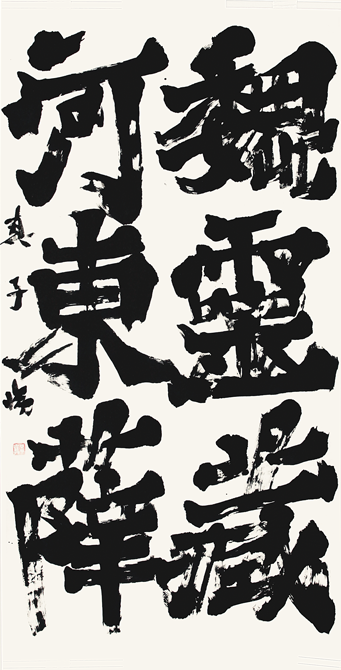 魏靈藏
河東薛
真子書